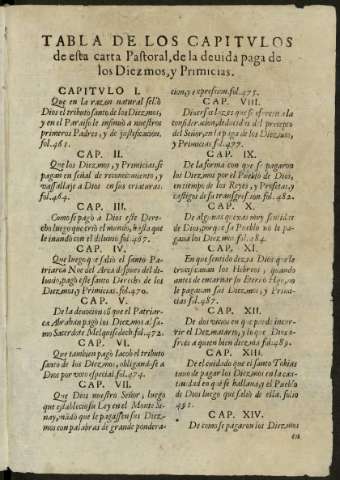 TABLA DE LOS CAPITVLOS
de esta carta Pastoral, de la deuida paga de
los Diezmos, y Primicias.
CAPITVLO I.
Que en la razon natural sellò
Dios el tributo santo de los Diezmos,
y en el Paraiso le insinuò a nuestros
primeros Padres, y de justificacion.
fol. 461.
CAP. II.
Que los Diezmos, y Primicias, se
pagan en señal de reconocimiento, y
vassallaje a Dios en sus criaturas.
fol. 464.
CAP. III.
Como se pagò a Dios este Dere-
cho luego que criò el mundo, hasta que
le inundò con el diluuio fol. 467.
CAP. IV.
Que luego que saliò el santo Pa-
triarca Noe del Arca despues del di-
luuio, pagò este santo Derecho de los
Diezmos, y Primicias. fol. 470.
CAP. V.
De la deuocion cõ que el Patriar-
ca Abrahan pagò los Diezmos al su-
mo Sacerdote Melquisedech fol. 472.
CAP. VI.
Que tambien pagò Iacob el tributo
santo de los Diezmos, obligando se a
Dios por voto especial fol. 474.
CAP. VII.
Que Dios nuestro Señor, luego
que estableciò su Ley en el Monte Si-
nay, mãdò que le pagassen sus Diez-
mos con palabras de grande pondera-
cion, y expression. fol. 475.
CAP. VIII.
Diuersas luzes que se ofrecen a la
consideracion, deduzidas del precepto
del Señor, en la paga de los Diezmos,
y Primicias fol. 477.
CAP. IX.
De la forma con que se pagaron
los Diezmos por el Pueblo de Dios,
en tiempo de los Reyes, y Profetas, y
castigos de su transgression fol. 482.
CAP. X.
De algunas quexas muy sentidas
de Dios, por que su Pueblo no le pa-
gaua los Diezmos fol. 484.
CAP. XI.
En que sentido dezia Dios que le
crucificauan los Hebreos, quando
antes de encarnar su Eterno Hijo, no
le pagauan sus Diezmos, y Primi-
cias fol. 487.
CAP. XII.
De dos riesgos en que puede incur-
rir el Dezmatario, y lo que Dios ofre-
ce a quien bien diezma fol. 489.
CAP. XIII.
De el cuidado que el santo Tobias
tuuo de pagar los Diezmos en la cau-
tiuidad en que se hallaua, y el Pueblo
de Dios luego que saliò de ella. folio
491.
CAP. XIV.
De como se pagaron los Diezmos
en